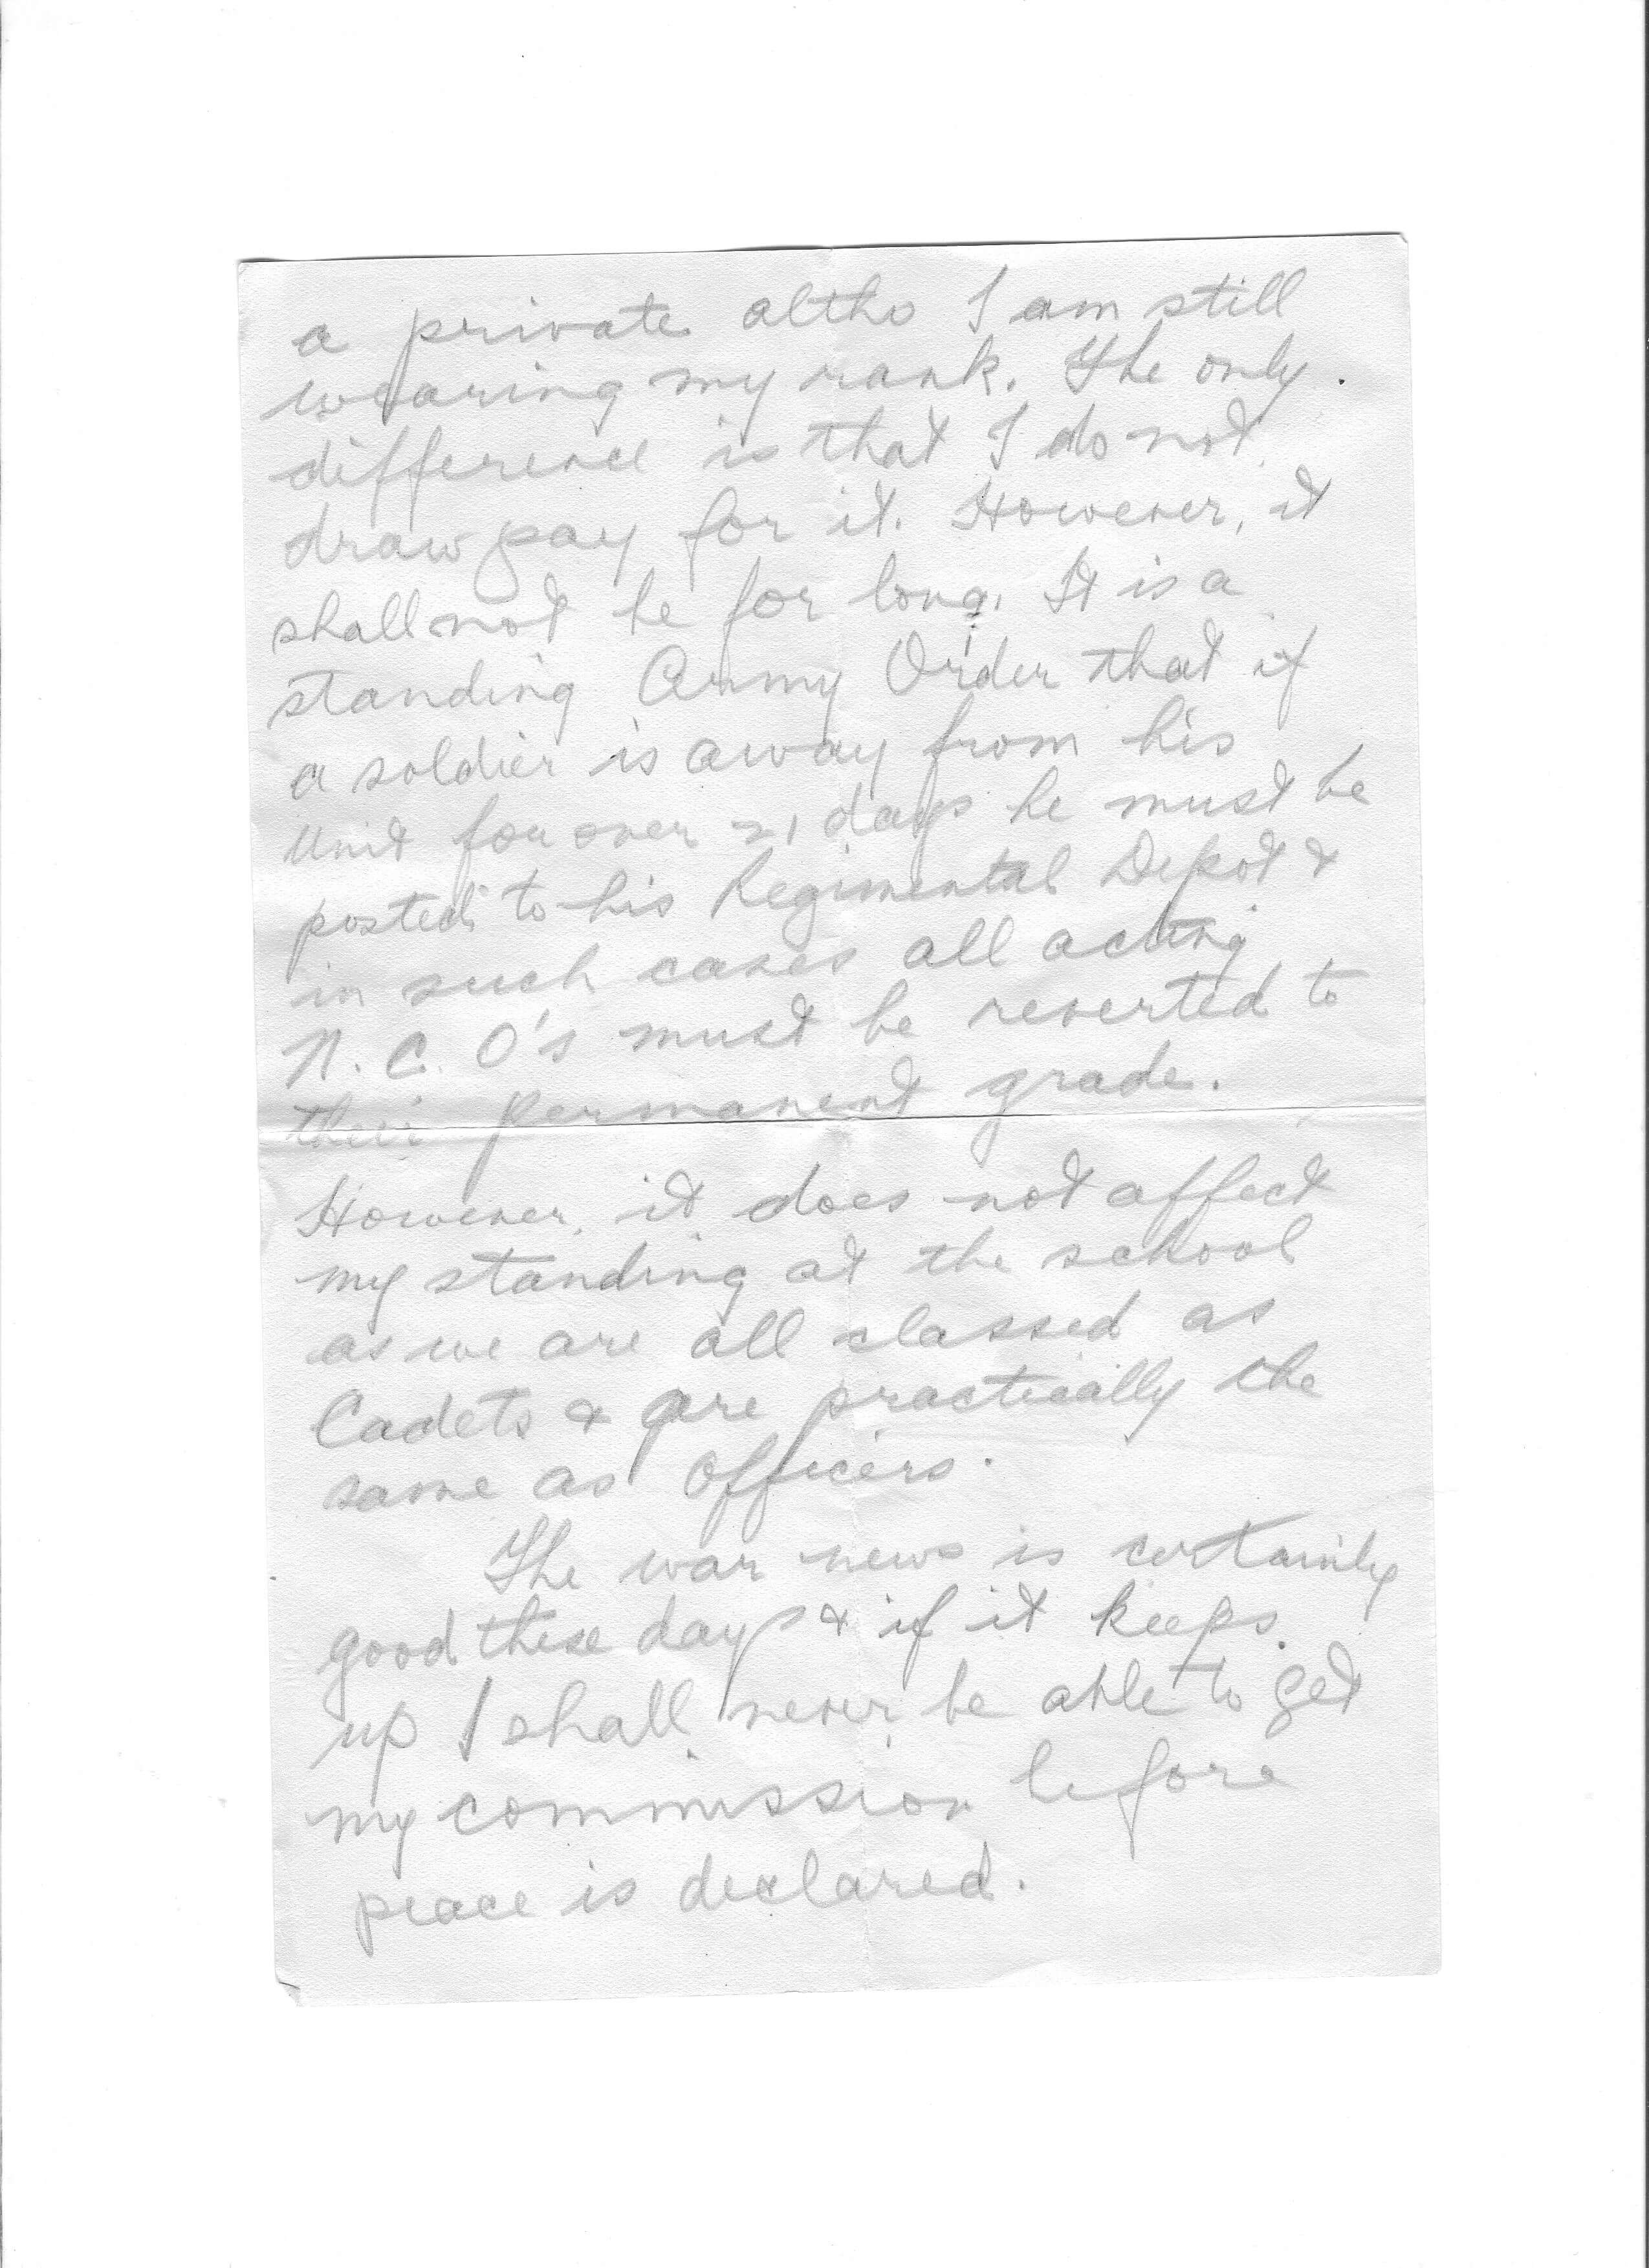 a private altho I am still
wearing my rank. The only
difference is that I do not
draw pay for it. However, it
shall not be for long. It is a
standing Army Order that if
a soldier is away from his
Unit for over 21 days he must be
posted to his Regimental Depot &
in such cases all acting
N. C. O's must be reverted to
their permanent grade.
However, it does not affect
my standing at the school
as we are all classed as
Cadets & are practically the
same as Officers.
The war news is certainly
good these days & if it keeps
up I shall never be able to get
my commission before
peace is declared.